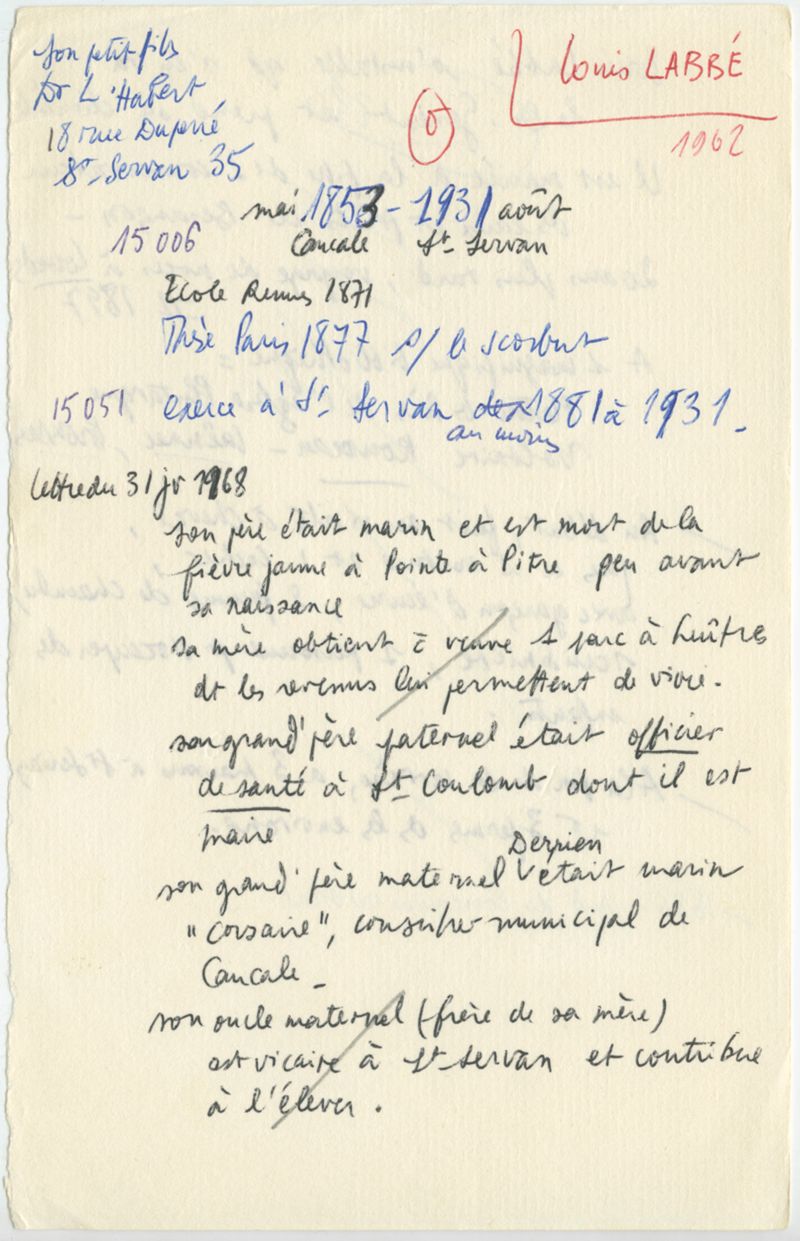 son petit fils
Dr L. Habert
18 rue Duperré
St-Servan 35
Louis LABBÉ
1962
mai 1853 - 1931 août
15006 Cancale St Servan
Ecole Rennes 1871
Thèse Paris 1877 s/ le scorbut
15051 exerce à St Servan de 1881 à 1931.
au moins
lettre du 31 jr 1968
son père était marin et est mort de la
fièvre jaune à Pointe à Pitre peu avant
sa naissance
sa mère obtient c̄ veuve 1 parc à huîtres
dt les revenus lui permettent de vivre.
son grand'père paternel était officier
de santé à St Coulomb dont il est
maire
Derrien
son grand'père maternel V était marin
"corsaire", conseiller municipal de
Cancale _
son oncle maternel (frère de sa mère)
est vicaire à St Servan et contribue
à l'élever.